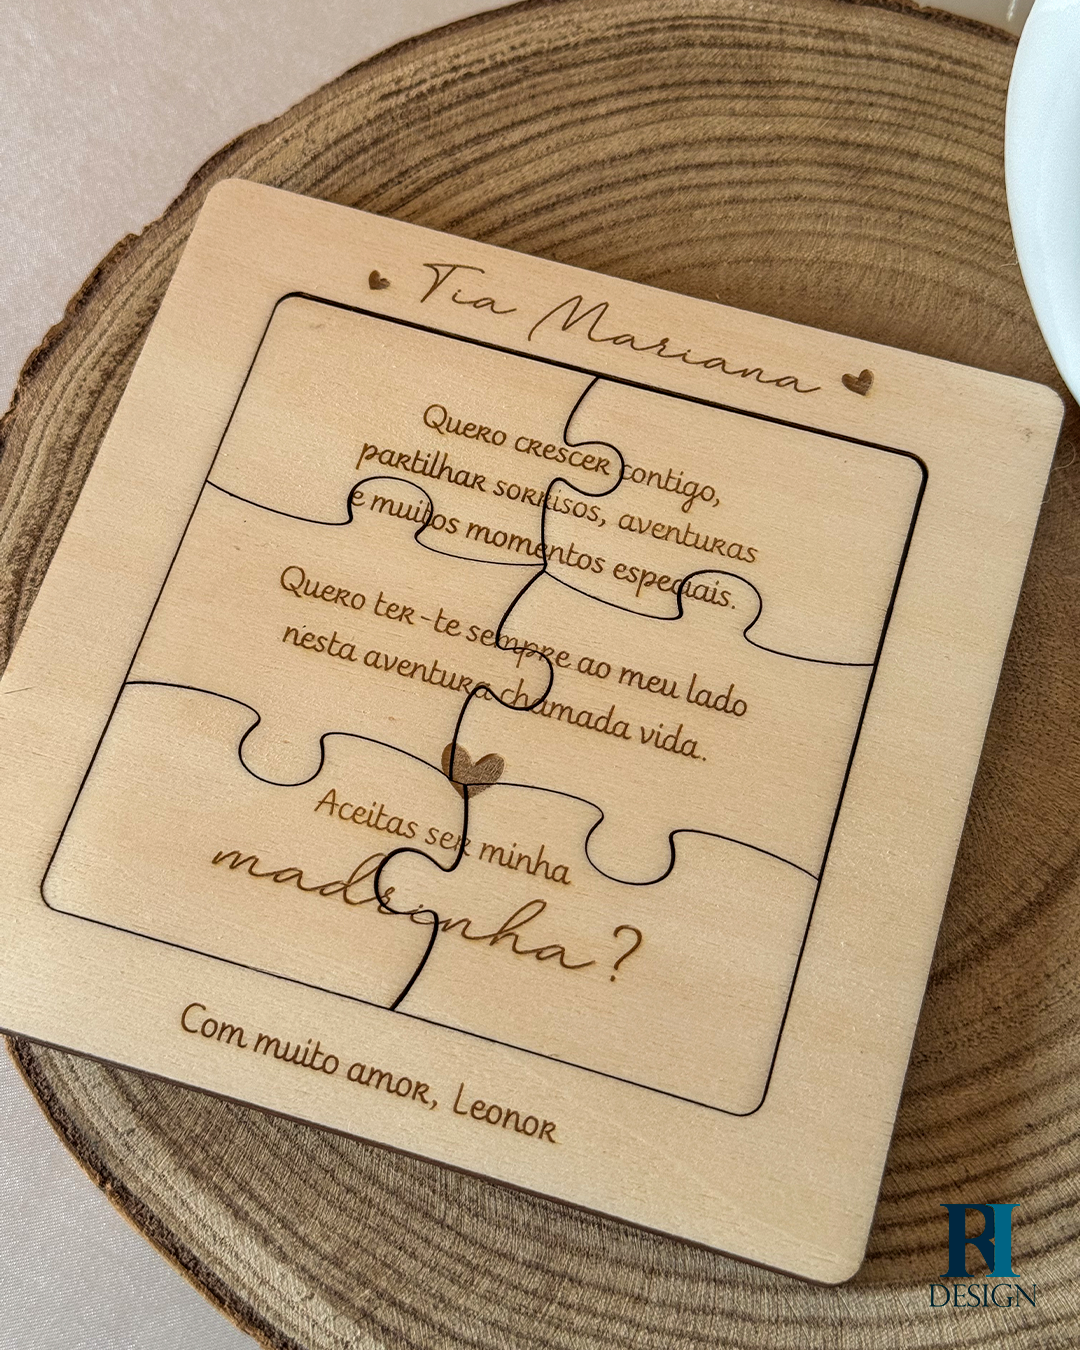 Tia Mariana
Quero crescer contigo,
partilhar sorrisos, aventuras
e muitos momentos especiais.
Quero ter-te sempre ao meu lado
nesta aventura chamada vida.
Aceitas ser minha
madrinha?
Com muito amor, Leonor
RI
DESIGN